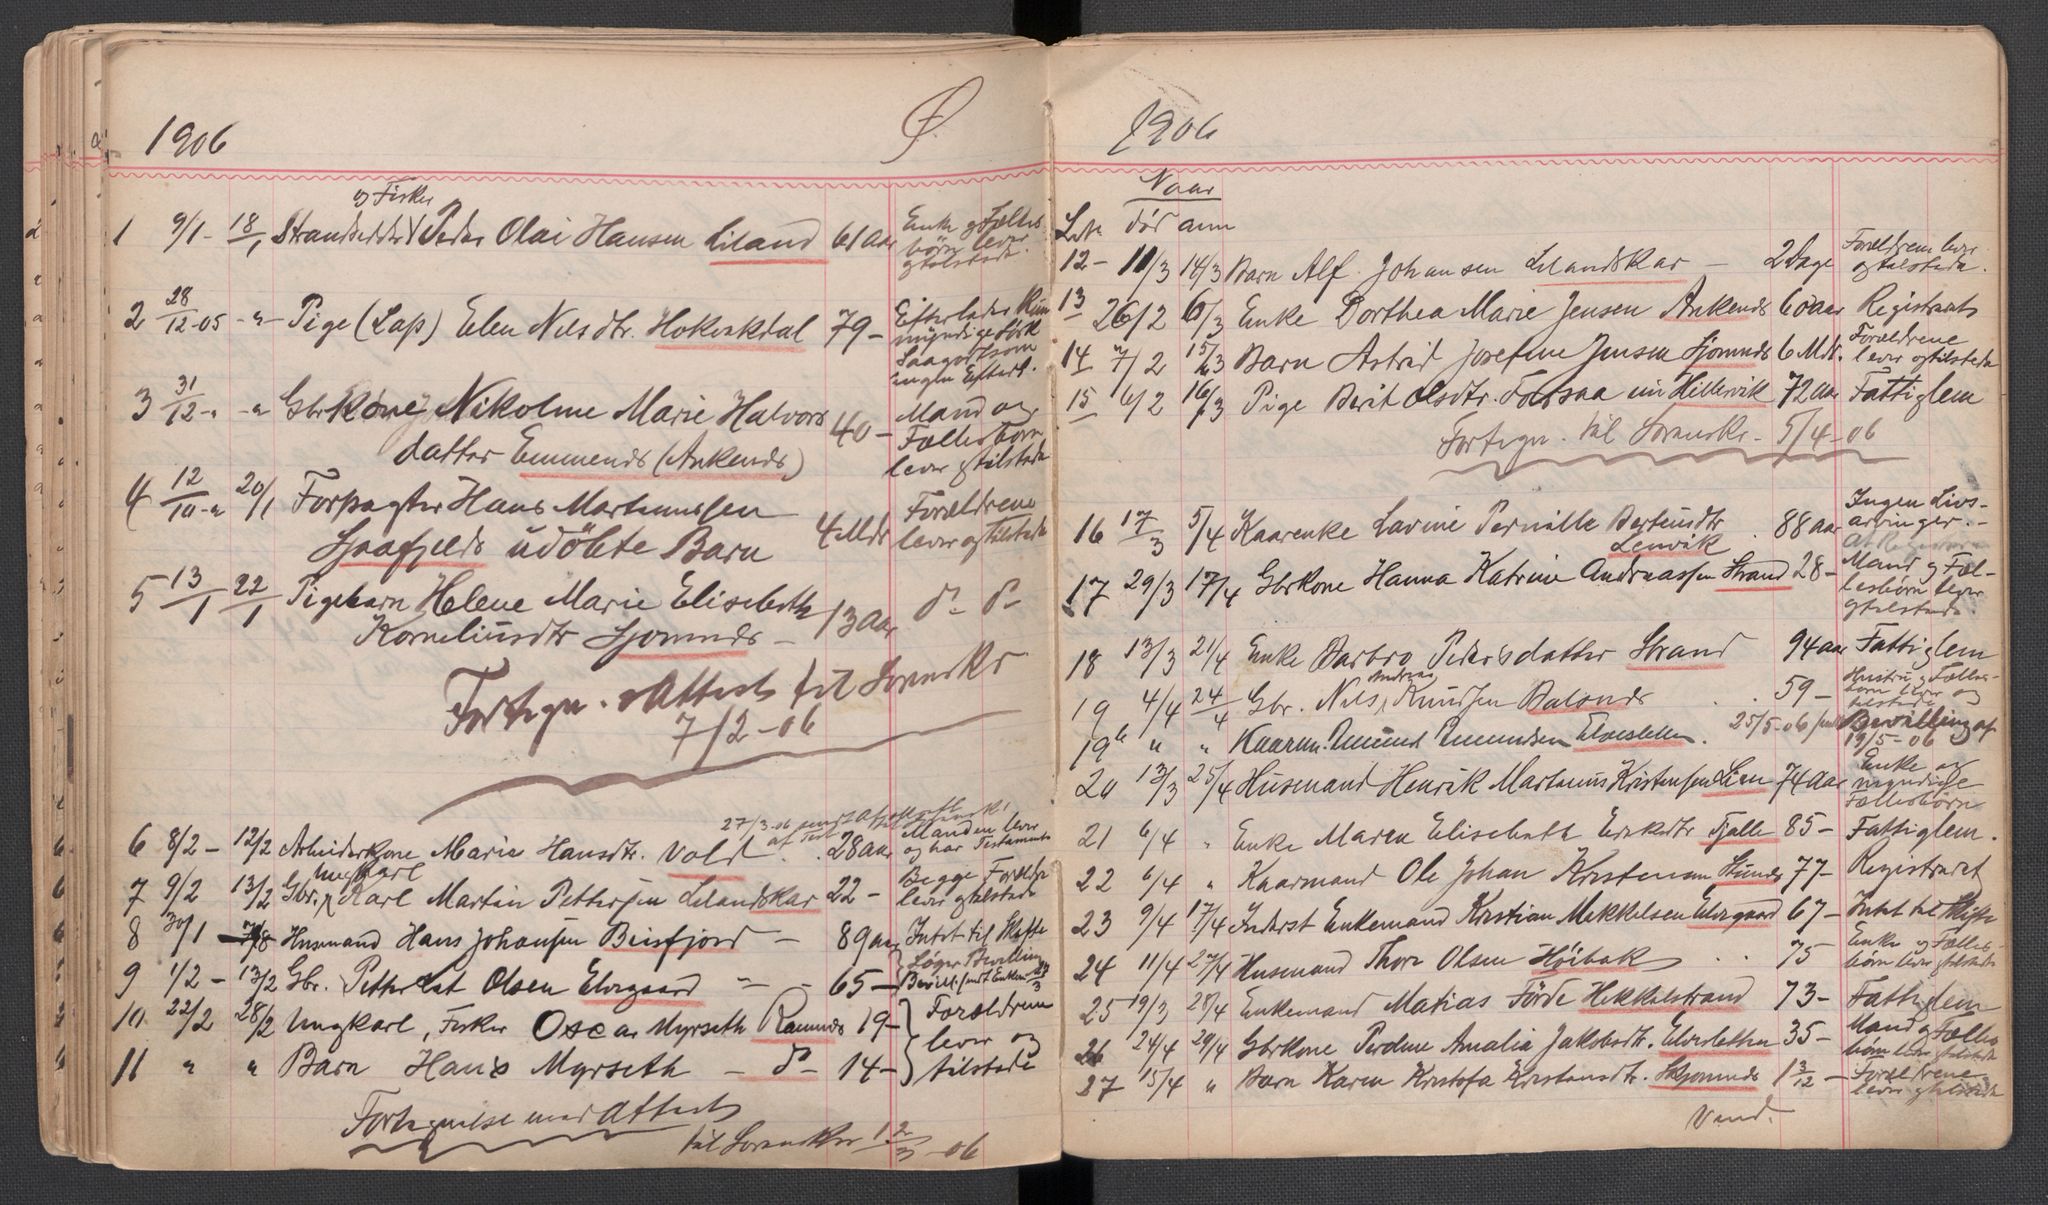 1906
og Fisker
1 9/1 - 18/1 Strandsidder Peder Olai Hansen Liland 61 aar Enke og Fælles
børn lever
og tilstede.
2 28/12-05 -"- Pige (Lap) Elen Nilsdtr. Hokvikdal 79 - Efterlader Kun
myndige Søsk
ingen Efterl.
3 31/12 -"- -"- Gbrkone Nikoline Marie Halvors 40 - Mand og
datter Emmenes (Ankenes) Fællesbørn
lever og tilstede
4 12/10 -"- 20/1 Forpagter Hans Martinussen Forældrene
Sjaafjelds udöbte Barn 4 Mdr lever og tilstede
5 13/1 22/1 Pigebarn Helene Marie Elisabeth 13 aar do do
Korneliusdtr Sjomnes -
Fortegn. & Attest til Sorenskr
7/2 - 06
27/3-06 sendt
6 8/2 - 12/2 Arbeiderkone Marie Hansdtr. Vold 28 aar Manden lever
og har Testament
Ungkarl
7 9/2 13/2 Gbr. Karl Martin Pettersen Lilandskar 22 - Begge Forældre
lever og tilstede
8 30/1 Husmand Hans Johansen Beisfjord - 89 aar Intet til Skifte
Søger Bevilling
9 1/2 - 13/2 Gbr. Petter Olsen Elvegaard - - 65 - Bevill. sendt Enken
10 22/2 28/2 Ungkarl, Fisker Oscar Myrseth Ramnes 19 - Forældrene
lever og
11 " " Barn Hans Myrseth - do - 14 - tilstede
Fortegnelse med Attest
til Sorenskr 12/3 - 06
1906
Naar
L.No död anm
12 - 11/3 14/3 Barn Alf Johansen Lilandskar - 2 Dage Forældrene lever
og tilstede.
13 26/2 6/3 Enke Dorthea Marie Jensen Ankenes 60 aar Registreret
14 7/2 15/3 Barn Astrid Josefine Jensen Sjomnes 6 Mdr. Forældrene
lever og tilstede
15 6/2 16/3 Pige Berit Olsdtr. Forsaa im Hillevik 72 aar Fattiglem
Fortegn. til Sorenskr. 5/4 - 06
16 17/3 5/4 Kaarenke Lavine Pernille Berteusdtr . 88 aar Ingen Livs-
Lenvik arvinger. -
17 29/3 17/4 Gbrkone Hanna Katrine Andreassen Strand 28 - Mand og Fæl-
lesbørn lever
og tilstede.
18 13/3 21/4 Enke Barbro Pedersdatter Strand 94 aar Fattiglem
Andreas
19 4/4 24/4 Gbr. Nils Knudsen Balsnes . . 59 - Hustru og Fælles-
børn lever og
tilstede
19b " " Kaarm. Amund Amundsen Elvesletten. 25/5-06 Bevilling af
19/5-06
20 13/3 25/4 Husmand Henrik Martinus Kristensen Lien 74 aar Enke og
myndige
Fællesbørn
21 6/4 " Enke Maren Elisabeth Eriksdtr Fjelle 85 - Fattiglem.
22 6/4 " Kaarmand Ole Johan Kristensen Skumes 77 - Registreret
23 9/4 17/4 Inderst Enkemand Kristian Mikkelsen Elvegaard 67 - Intet til Skifte
24 11/4 27/4 Husmand Thore Olsen Höibak . . 75 Enke og Fælles-
børn lever og tilstede
25 19/3 28/4 Enkemand Matias Förde Hekkelstrand 73 - Fattiglem
26 24/4 29/4 Gbrkone Perdine Amalia Jakobsdtr. Elvesletten 35 - Mand og Fælles
børn lever og tilstede
27 15/4 " Barn Karen Kristofa Kristiansdtr. Skjomnes 1 3/12 - Forældrene
lever og tilstede
Vend.